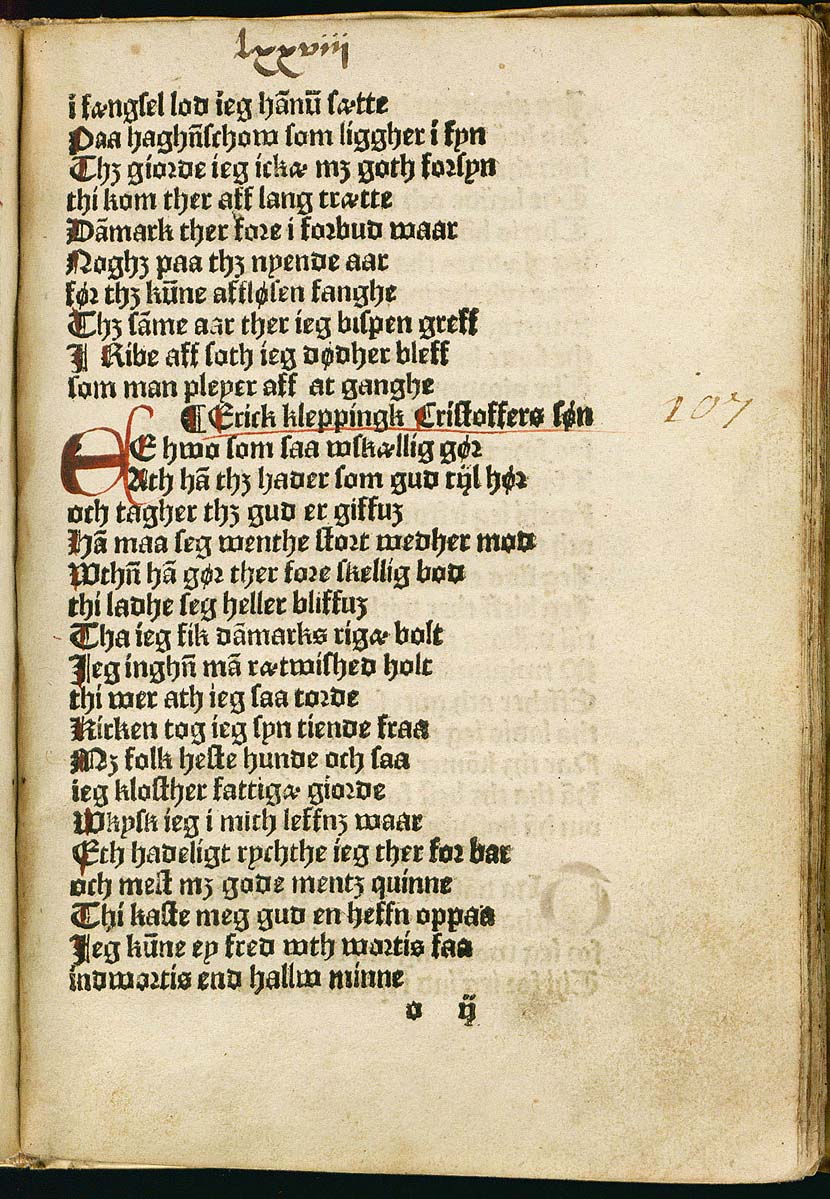 lxxviii
i fængsel lod ieg hãnũ sætte
Paa haghñschow som liggher i fyn
Thꝫ giorde ieg ickæ mꝫ goth forsyn
thi kom ther aff lang trætte
Dãmark ther fore i forbud waar
Noghꝫ paa thꝫ nyende aar
før thꝫ kũne affløsen fanghe
Thꝫ sãme aar ther ieg bispen greff
J Ribe aff soth ieg dødher bleff
som man pleyer aff at ganghe
¶ Erick kleppingk Cristoffers søn
107
EE hwo som saa wskællig gør
Ath hã thꝫ hader som gud tijl hør
och tagher thꝫ gud er giffuꝫ
Hã maa seg wenthe stort wedher mod
Wthñ hã gør ther fore skellig bod
thi ladhe seg heller bliffuꝫ
Tha ieg fik dãmarks rigæ bolt
Jeg inghñ mã rætwished holt
thi wer ath ieg saa torde
Kirken tog ieg syn tiende fraa
Mꝫ folk heste hunde och saa
ieg closther fattigæ giorde
Wkysk ieg i mith leffnꝫ waar
Eth hadeligt rychthe ieg ther for bar
och mest mꝫ gode mentz quinne
Thi kaste meg gud en heffn oppaa
Jeg kũne ey fred wth wortis faa
indwortis end hallw minne
o ij